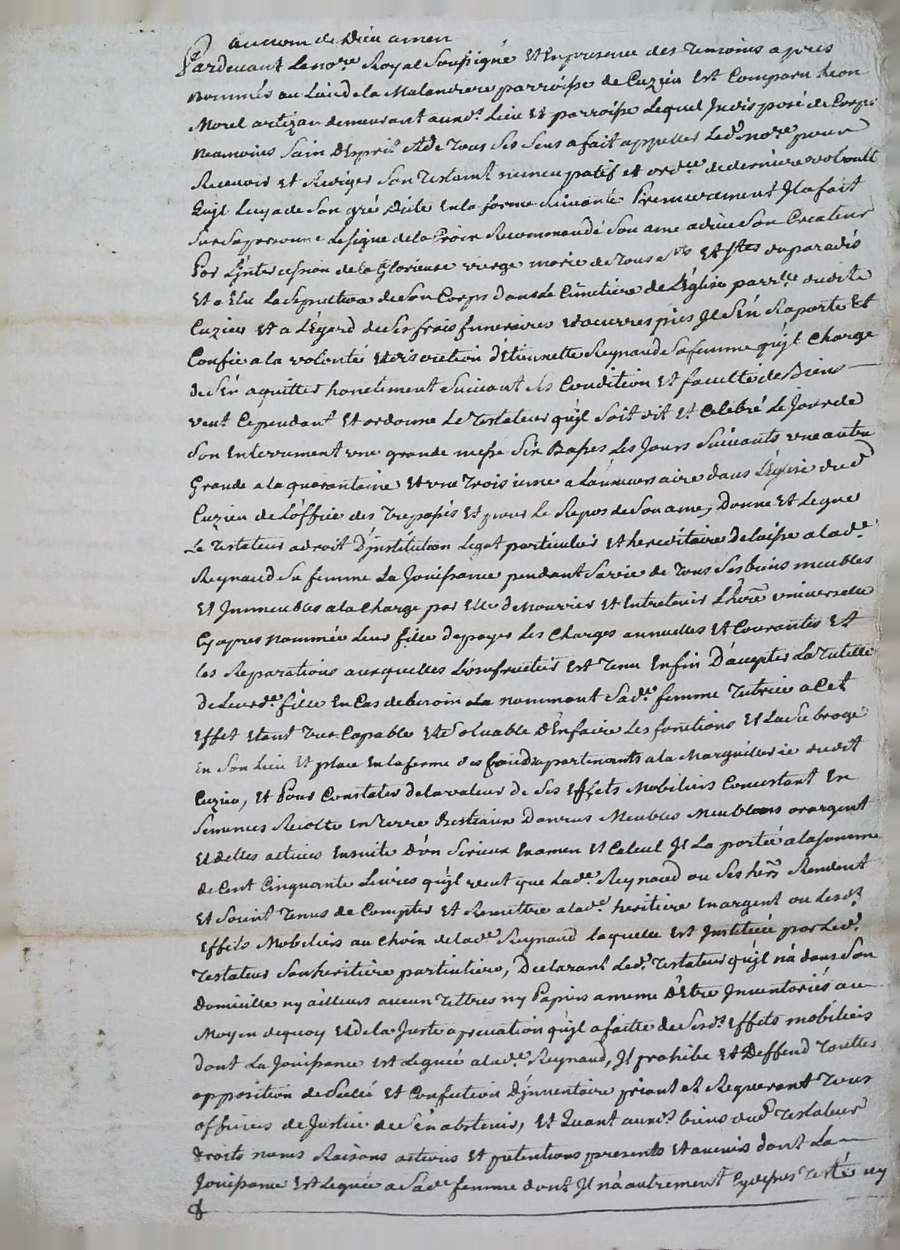 au nom de Dieu amen
Pardevant Lenore Royal Soussigné Et En presence des Temoins apres
nommés au Lieu de la Malandere parroisse de Cuzieu Est Comparu
Morel artizan demeurant aud. Lieu Et parroisse Lequel Indisposé de Corps
neamoins Sain d'Esprit Et de Tous Ses Sens a fait appeller Led. nore pour
Recevoir Et Rediger Son Testamt nuncupatif et ordre de derniere volonté
quil Luy a de Son gré Dicté En la forme Suivante Premierement Il a fait
Sur Sa personne Le Signe de la Croix Recommandé Son ame a dieu Son Createur
Par L'intercession de la Glorieuse vierge marie de Tous Sts Et Stes du paradis
Et a Elu La Sepulture de Son Corps dans Le Cimetiere de L'Eglise parrlle dudit
Cuzieu Et a L'Egard de Ses frais funeraires Et oeuvres pies Il S'En Raporte Et
Confie a la volonté Et discretion d'Etiennette Reynaud Sa femme qu'il Charge
de S'En aquitter honetement Suivant Ses Condition Et faculté de Biens
veut Cependant Et ordonne Le Testateur qu'il Soit dit Et Celebré Le Jour de
Son Enterrement une grande messe Six Basses Les Jours Suivants une autre
Grande a la quarantaine Et une Troisieme a L'anniversaire dans L'Eglise dud
Cuzieu de L'office des Trepassés Et pour Le Repos de Son ame, Donne Et Legue
Le Testateur a droit D'institution Legat particulier Et hereditaire delaisse a lad.
Reynaud Sa femme La Jouissance pendant Sa vie de Tous Ses biens meubles
Et Immeubles a la Charge par Elle de Nourrir Et Entretenir L'hére universelle
Cy apres nommée Leur fille de payer Les Charges annuelles Et Courantes Et
les Reparations auxquelles L'usufruitier Est Tenu Enfin D'accepter La Tutelle
De Leurde. fille En Cas de besoin La nommant Sade. femme Tutrice a Cet
Effet Etant Tres Capable Et Soluable d'En faire Les fonctions Et La Subroge
En Son Lieu Et place En la ferme des fonds apartenants a la Marguillerie dudit
Cuzieu, Et Pour Constater de la valeur de Ses Effets Mobiliers Concistant En
Semences Recolte En Terre Bestiaux Danrées Meubles Meublans or argent
Et dettes actives Ensuite d'un Serieux Examen Et Calcul Il La portée a la somme
de Cent Cinquante Livres qu'il veut que Lade. Reynaud ou Ses hers Rendent
Et Soient Tenus de Compter Et Remettre a lade. heritiere En argent ou Lesd.
Effets Mobiliers au Choix de lade Reynaud Laquelle Est Instituée par Led.
Testateur Son heritiere particuliere, Declarant Led. Testateur qu'il n'a dans Son
Domicille ny ailleurs aucun Tittres ny Papiers a meme d'Etre Inventoriés au
Moyen de quoy Et de la Juste apreciation qu'il a faitte de Sesd. Effets mobiliers
dont La Jouissance est Leguée a lade. Reynaud, Il prohibe Et Deffend Touttes
opposition de Scellé Et Confection D'inventaire priant et Requerant Tous
officiers de Justice de S'En abstenir, Et Quant auxd. biens dud Testateur
droits noms Raisons actions Et pretentions presents Et avenir dont La
Jouissance Est Leguée a Sade. femme dont Il n'a autrement Cy dessus Testé ny